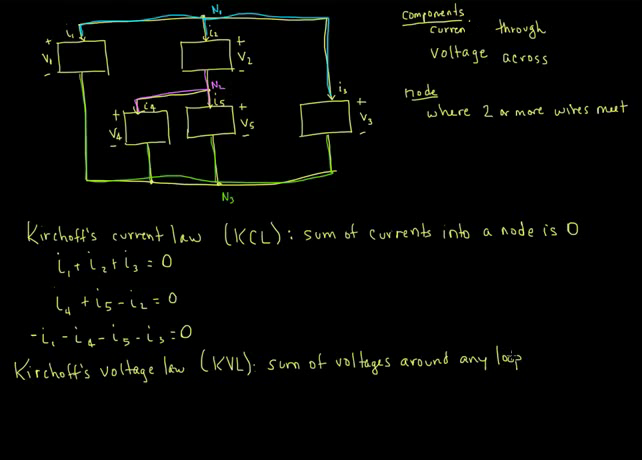 N₁
i₁
i₂
+ V₁ -
+ V₂ -
N₂
i₄
i₅
i₃
+ V₄ -
+ V₅ -
+ V₃ -
N₃
Components
Curren through
Voltage across
node
where 2 or more wires meet
Kirchoff's current law (KCL): sum of currents into a node is 0
i₁ + i₂ + i₃ = 0
i₄ + i₅ - i₂ = 0
-i₁ - i₄ - i₅ - i₃ = 0
Kirchoff's voltage law (KVL): sum of voltages around any loop